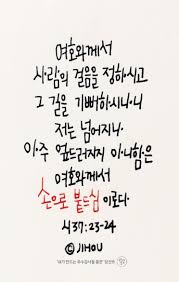 여호와께서
사람의 걸음을 정하시고
그 길을 기뻐하시나니
저는 넘어지나
아주 엎드러지지 아니함은
여호와께서
손으로 붙드심 이로다.
시37:23-24
© JIHOU